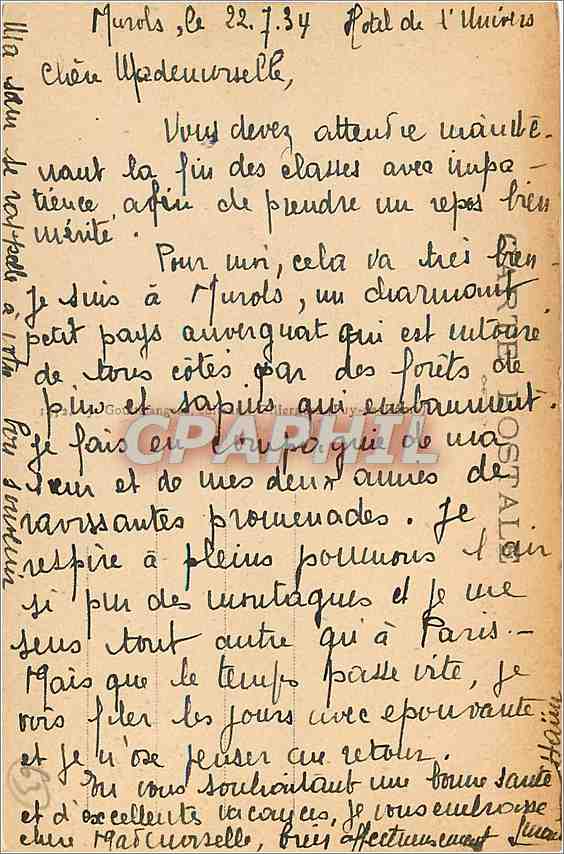 Murols, le 22.7.34 Hotel de l'Univers
Chère Mademoiselle,
Vous devez attendre mainte-
nant la fin des classes avec impa-
tience afin de prendre un repos bien
mérité.
Pour moi, cela va très bien.
Je suis à Murols, un charmant
petit pays auvergnat qui est entouré
de tous côtés par des forêts de
pins et sapins qui embaument.
Je fais en compagnie de ma
sœur et de mes deux amies de
ravissantes promenades. Je
respire à pleins poumons l'air
si pur des montagnes et je me
sens tout autre qu'à Paris.-
Mais que le temps passe vite, je
vois filer les jours avec epouvante
et je n'ose penser au retour.
En vous souhaitant une bonne santé
et d'excellentes vacances, je vous embrasse
chère Mademoiselle, bien affectueusement
Ma sœur se rappelle à votre bon souvenir
CARTE POSTALE
CPAPHIL
63